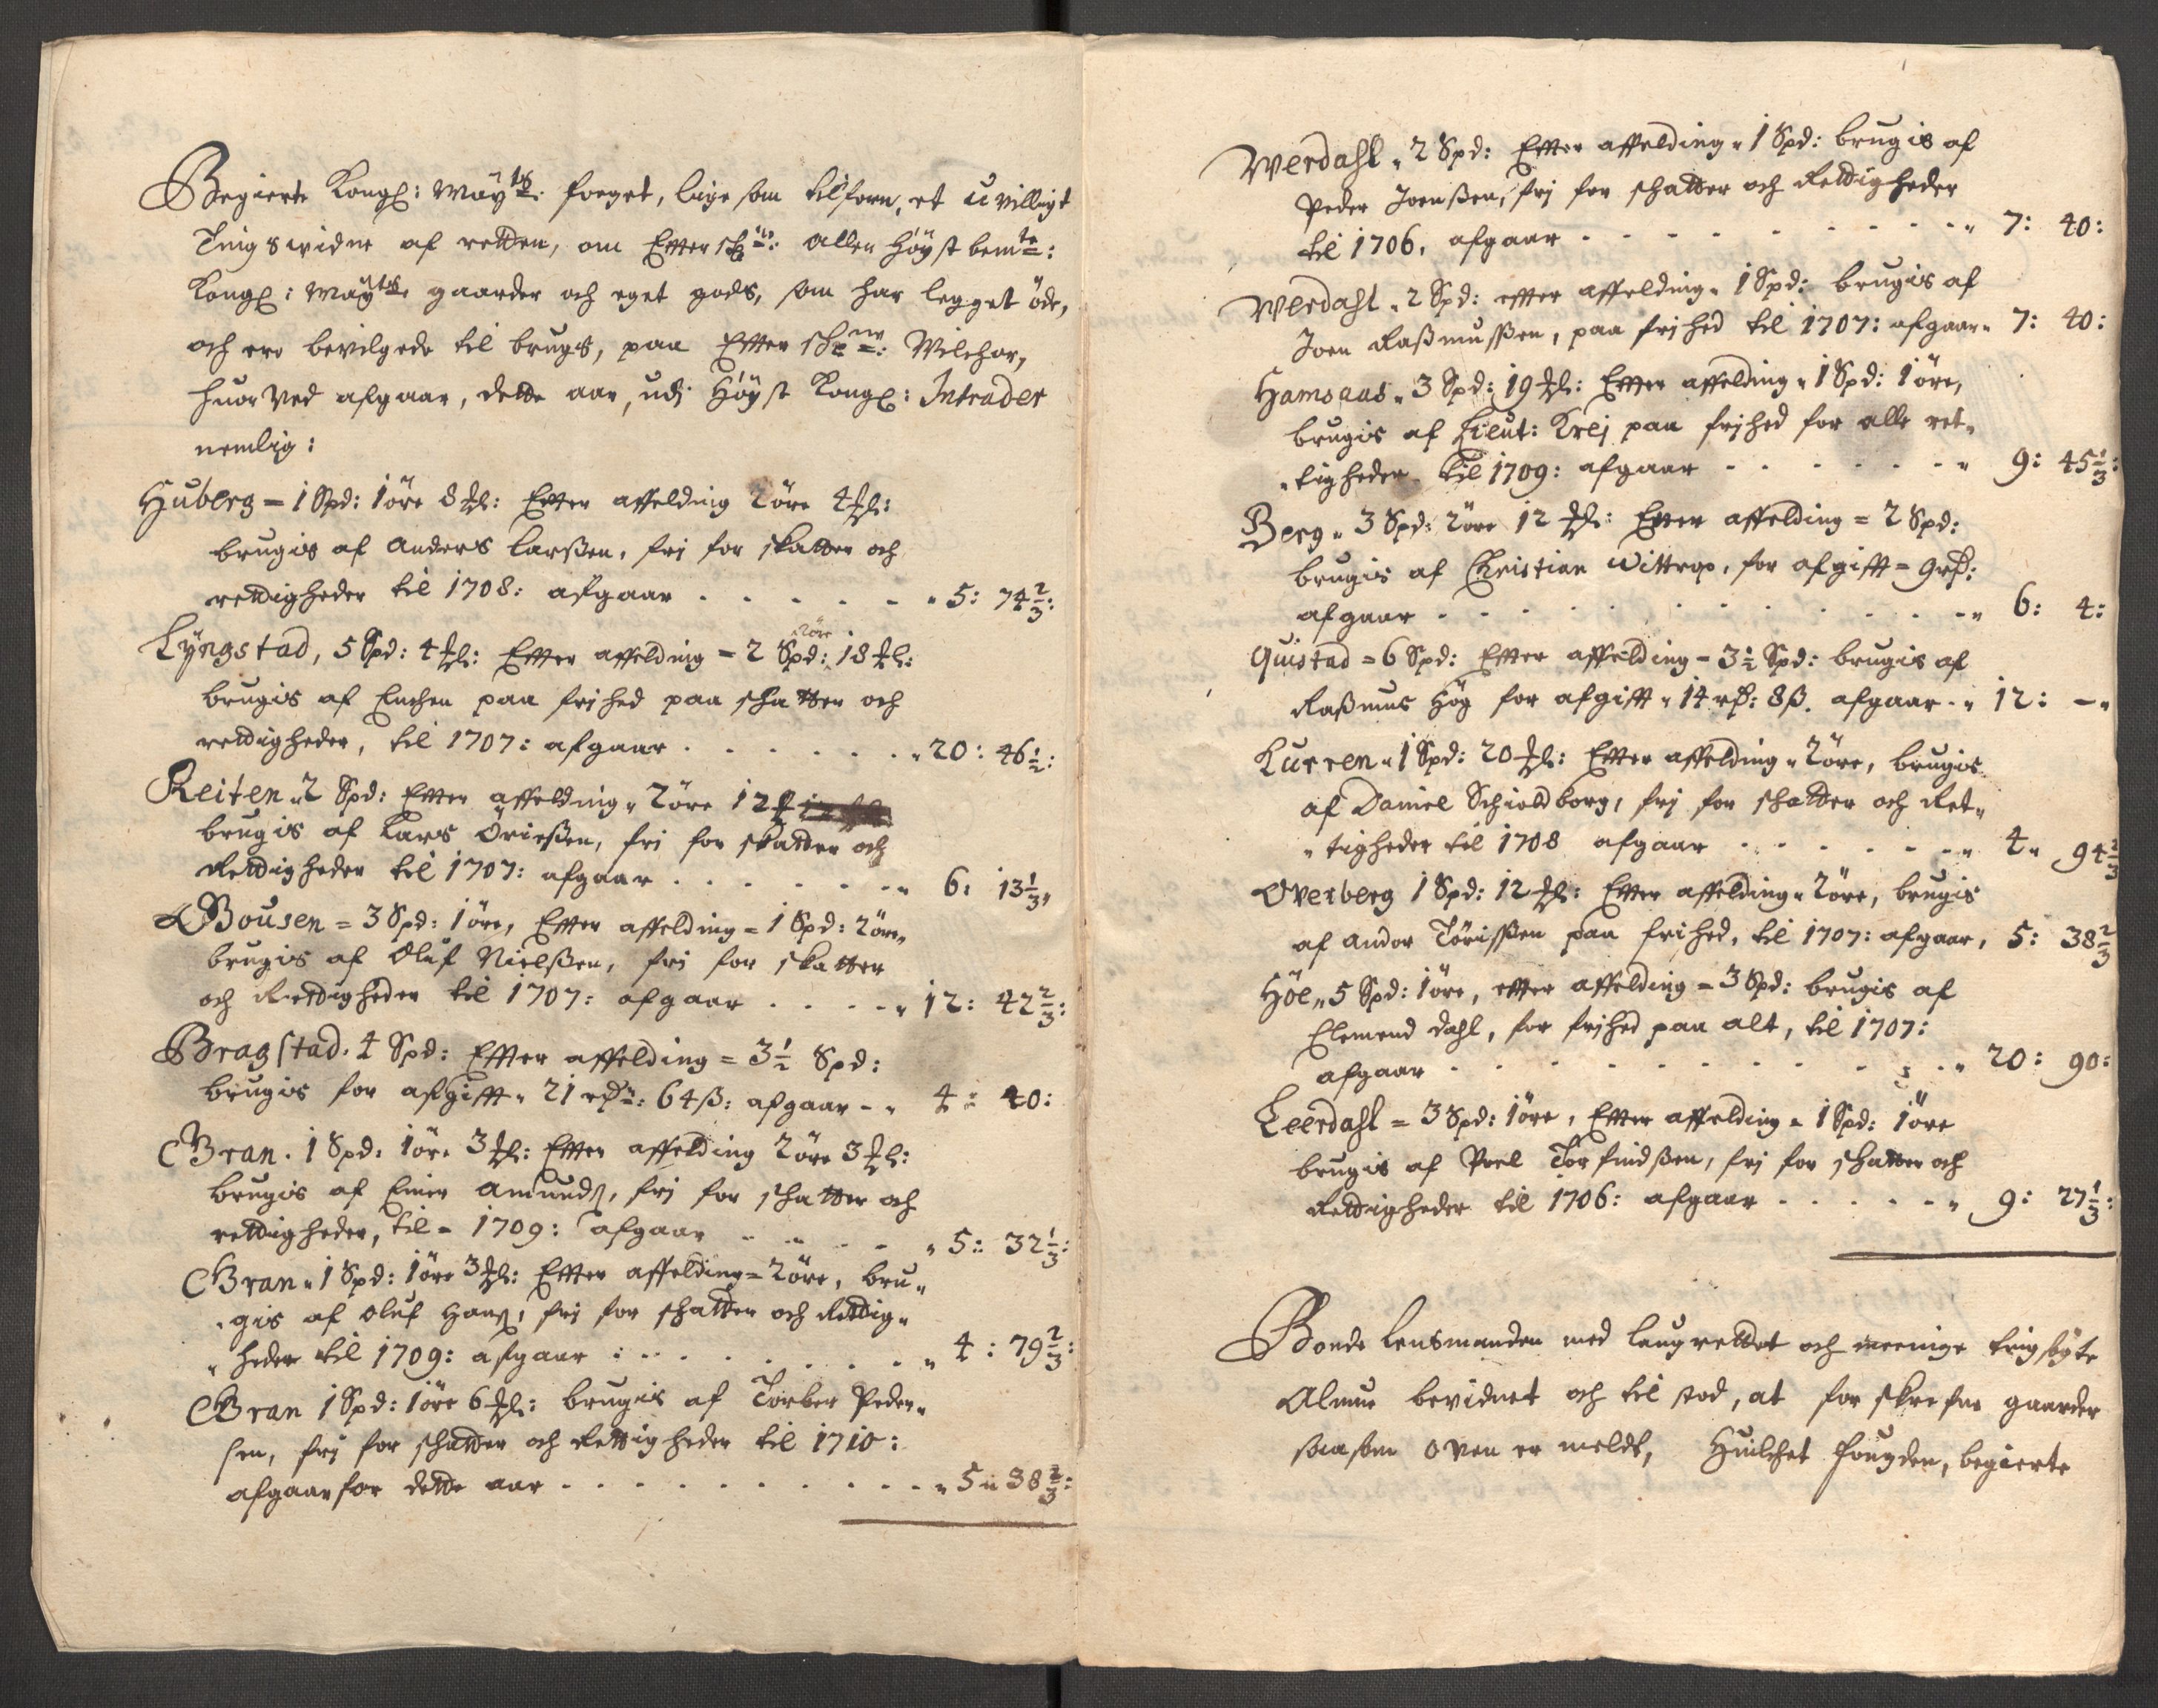 Begierte Kongl: Mayts: foeget, lige som tilforn, et uvilligt
Tingswidne af retten, om Effterschne: allerhöyst bemte:
Kongl: Mayts: gaarder och eget gods, som har legget öde,
och ere bevilgede til brugs, paa Effterschne: Vilchor,
huor ved afgaar, dette aar, udj Höyst Kongl: Intrader
nemlig:
Huberg = 1 Spd: 1 öre 8 ℔: Efter affelding 2 öre 4 ℔:
brugis af Anders Larßen, frj for skatter och
rettigheder til 1708: afgaar - - - - - 5: 74 2/3:
Lyngstad, 5 Spd: 4 ℔: Effter affelding = 2 Spd: 1 öre 18 ℔:
brugis af Enchen paa frjhed paa schatter och
rettigheder, til 1707: afgaar - - - - - 20: 46 1/2:
Reiten 2 Spd: Effter affelding 2 öre 12 ℔
brugis af Lars Örießen, fri for skatter och
Rettigheder til 1707: afgaar - - - - - 6: 13 1/3
Bousen = 3 Spd: 1 öre, Effter affelding = 1 Spd: 2 öre
brugis af Oluf Nielßen, fri for skatter
och Rettigheder til 1707: afgaar - - - - 12: 42 2/3:
Bragstad. 4 Spd: Effter affelding = 3 1/2 Spd:
brugis for afgifft 21 rdr: 64 ß: afgaar - - 4: 40:
Gran. 1 Spd: 1 öre 3 ℔: Effter affelding 2 öre 3 ℔:
brugis af Einer Amunds, frj for schatter och
rettigheder, til = 1709: afgaar - - - - 5: 32 1/3:
Gran 1 Spd: 1 öre 3 ℔: Effter affelding = 2 öre, bru-
gis af Oluf Hans, frj for schatter och Rettig-
heder til 1709: afgaar - - - - - 4: 79 2/3:
Gran 1 Spd: 1 öre 6 ℔: brugis af Torber Peder-
sen, frj for schatter och Rettigheder til 1710:
afgaar for dette aar - - - - - - 5: 38 2/3:
Werdahl 2 Spd: Effter affelding 1 Spd: brugis af
Peder Joenßen, frj for schatter och Rettigheder
til 1706, afgaar - - - - - - - 7: 40:
Werdahl 2 Spd: effter affelding 1 Spd: brugis af
Joen Raßmußen, paa frjhed til 1707: afgaar 7: 40:
Hamsaas 3 Spd: 19 ℔: Effter affelding 1 Spd: 1 öre,
brugis af Lieut: Krej paa frjhed for alle ret-
tigheder til 1709: afgaar - - - - - 9: 45 1/3:
Berg 3 Spd: 2 öre 12 ℔: Effter affelding = 2 Spd:
brugis af Christian Wittrop, for afgifft = 9 rd:
afgaar - - - - - - - - 6: 4:
Quistad = 6 Spd: Effter affelding = 3 1/2 Spd: brugis af
Raßmus Hög for afgifft 14 rd: 8 ß. afgaar 12: -
Lurren 1 Spd: 20 ℔: Effter affelding 2 öre, brugis
af Daniel Schioldborg, frj for schatter och Ret-
tigheder til 1708 afgaar - - - - - 4 94 2/3
Overberg 1 Spd: 12 ℔: Effter affelding 2 öre, brugis
af Andor Törißen paa frihed, til 1707: afgaar, 5: 38 2/3
Höl 5 Spd: 1 öre, effter affelding = 3 Spd: brugis af
Elemend Dahl, for frjhed paa alt, til 1707:
afgaar - - - - - - - - 20: 90:
Leerdahl = 3 Spd: 1 öre, Effter affelding 1 Spd: 1 öre
brugis af Poel Torfindßen, frj for schatter och
Rettigheder til 1706: afgaar - - - - - 9: 27 1/3:
Bonde Lensmanden med Laugrettet och meenige tingsögte
Almue bevidnet och til stod, at forskrefne gaarder
saasom oven er meldt, Huilchet fougden, begierte